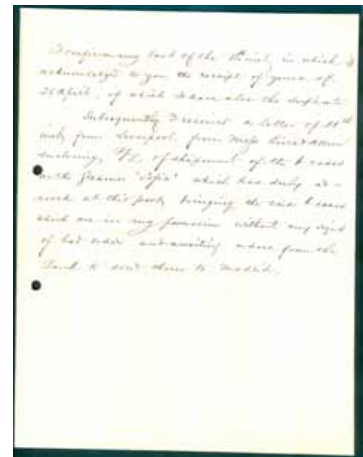 I confirm my last of the 1st inst, in which I
acknowledged to you the receipt of yours of
26 April, of which I have also the duplicate
Subsequently I received a letter of 11th
inst, from Liverpool, from Messrs
enclosing B/L of shipment of the 4 cases
on the Steamer "Sofia" which has duly ar-
rived at this port, bringing the said 4 cases
which are in my possession without any signs
of bad order and awaiting orders from the
Bank to send them to Madrid.